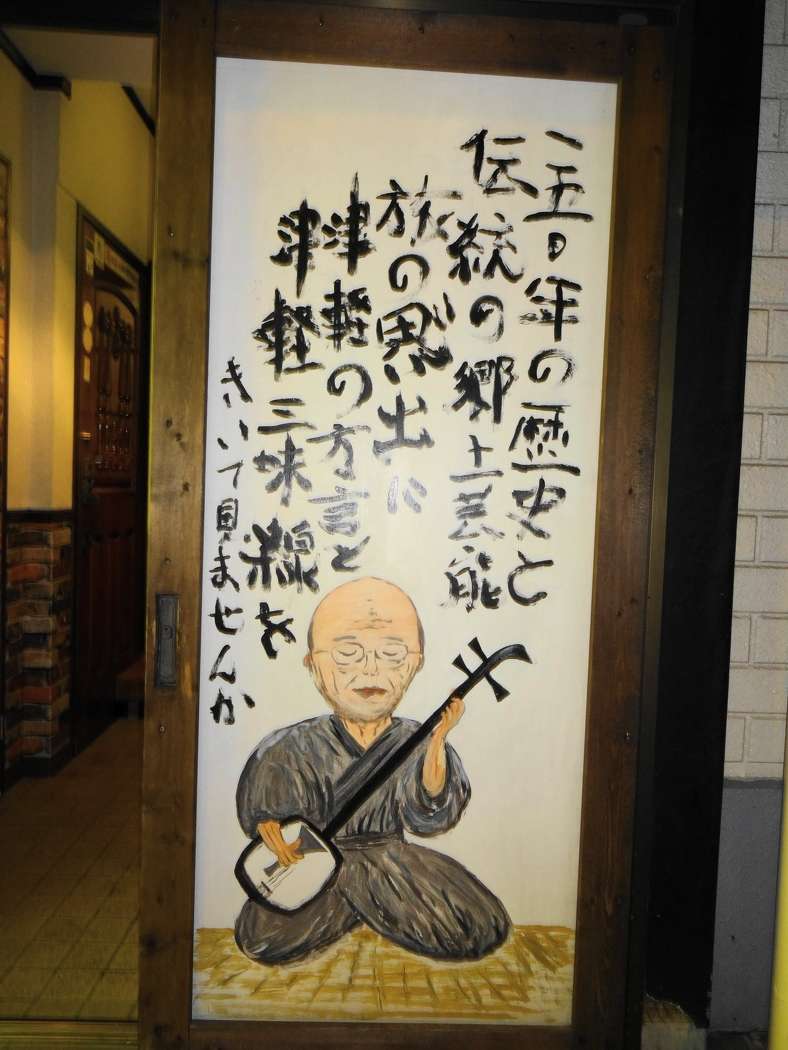 二五〇年の歴史と
伝統の郷土芸能
旅の思い出に
津軽の方言と
津軽三味線を
きいて見ませんか